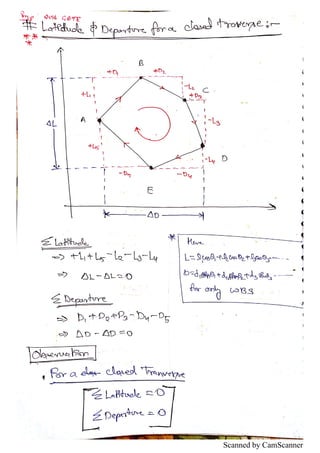 # Latitude & Departure for a closed Traverse :-
B
+D1
+D2
+L1
-L2
+D3
C
A
-L3
ΔL
+L5
-L4
D
-D5
-D4
E
ΔD
Σ Latitude
⇒ +L1+L5-L2-L3-L4
⇒ ΔL-ΔL=0
Σ Departure
⇒ D1+D2+D3-D4-D5
⇒ ΔD-ΔD=0
* Here
for only WBS
Observation
. For a closed Tranverse
Σ Latitude = 0
Σ Departure = 0
Scanned by CamScanner